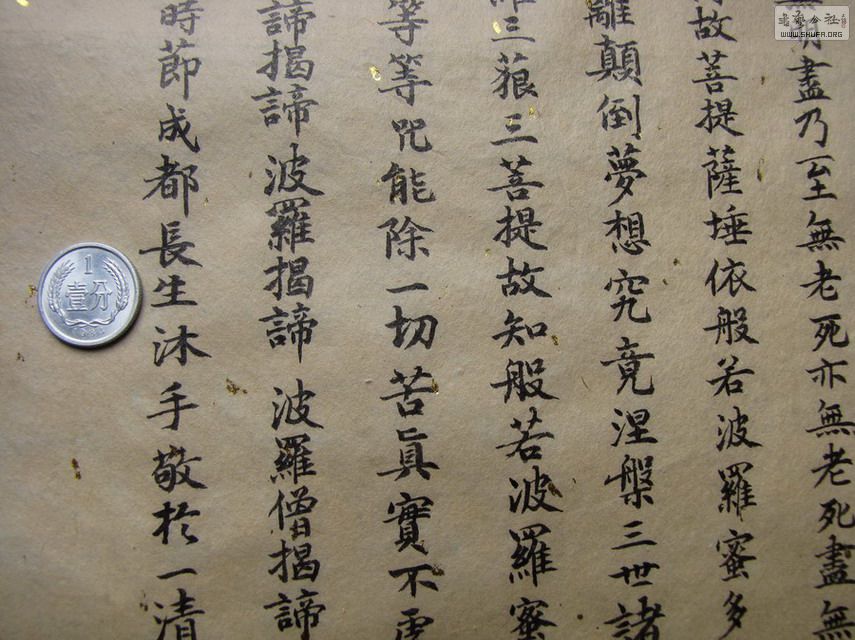 無明盡乃至無老死亦無老死盡無
故菩提薩埵依般若波羅蜜多
離顛倒夢想究竟涅槃三世諸
三藐三菩提故知般若波羅蜜
等等咒能除一切苦真實不虛
諦揭諦 波羅揭諦 波羅僧揭諦
時節成都長生沐手敬於一清
1
壹分
書藝公社
WWW.SHUFA.ORG